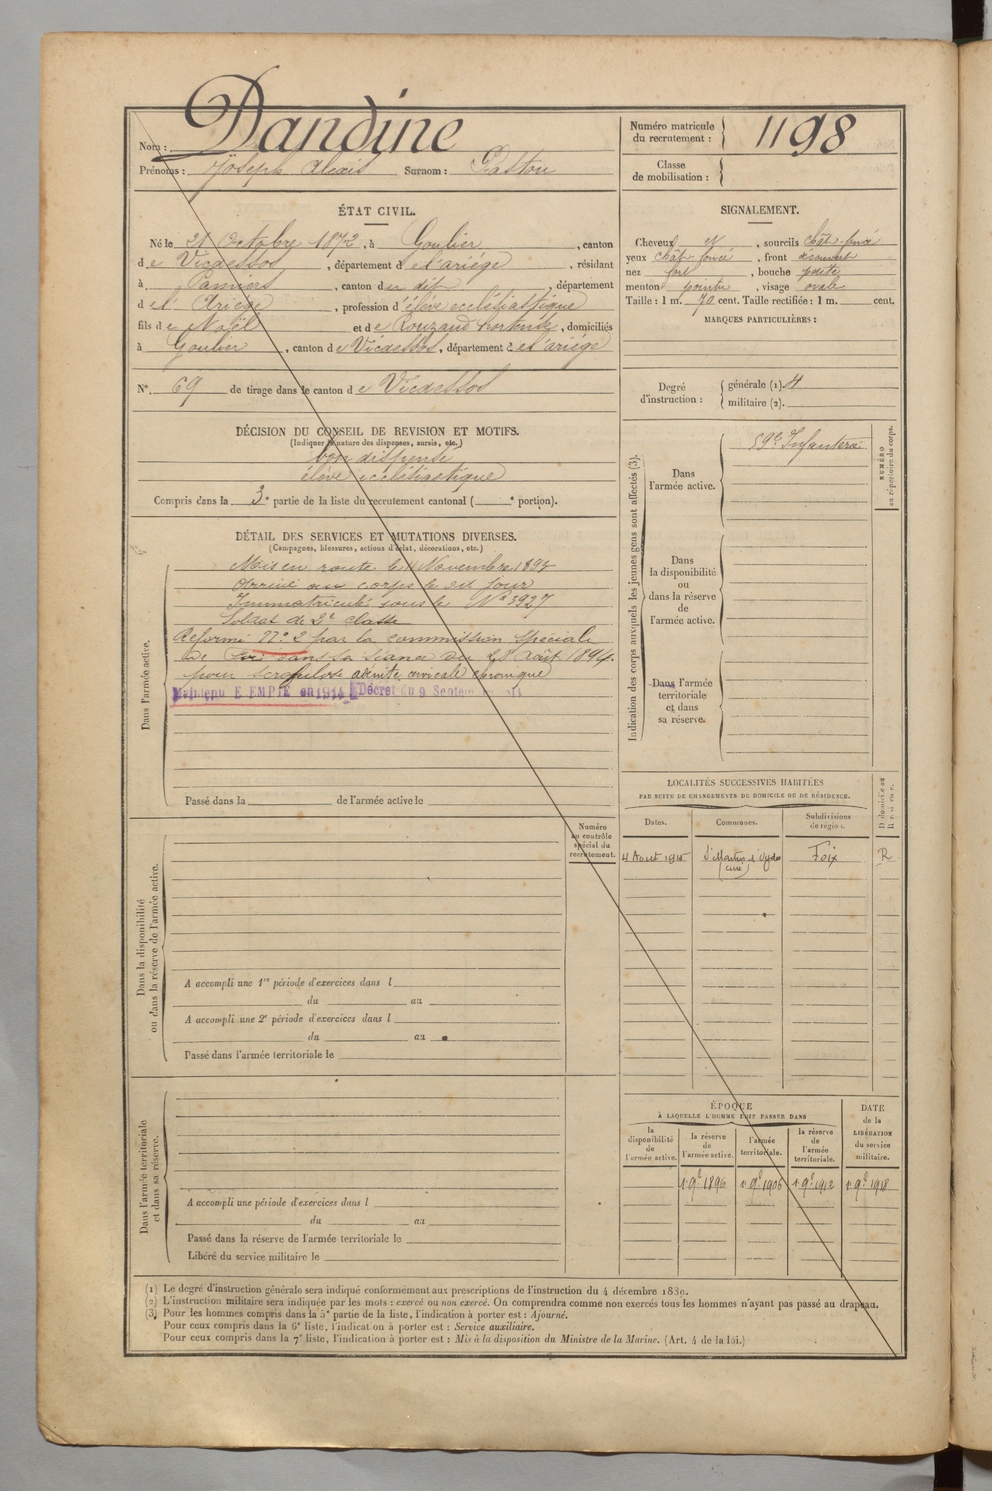 Nom : Dandine
Prénoms : Joseph Alexis Surnom : Gaston
Numéro matricule du recrutement : 1198
Classe de mobilisation :
ÉTAT CIVIL.
Né le 21 Octobre 1872, à Goulier, canton
de Vicdessos, département de l'ariége, résidant
à Pamiers, canton du dit, département
de l' Ariège, profession d'élève ecclésiastique
fils de Noël et de Rouzaud hortense, domiciliés
à Goulier, canton de Vicdessos, département de l'ariége
N° 69 de tirage dans le canton de Vicdessos
SIGNALEMENT.
Cheveux et, sourcils chât-foncé
yeux chât-foncé, front découvert
nez fort, bouche petite
menton pointu, visage ovale
Taille : 1 m. 70 cent. Taille rectifiée : 1 m. cent.
MARQUES PARTICULIÈRES :
Degré d'instruction : générale (1).
militaire (2).
DÉCISION DU CONSEIL DE REVISION ET MOTIFS.
(Indiquer la nature des dispenses, sursis, etc.)
bon dispensé
élève ecclésiastique
Compris dans la 3e partie de la liste du recrutement cantonal ( e portion).
DÉTAIL DES SERVICES ET MUTATIONS DIVERSES.
(Campagnes, blessures, actions d'éclat, décorations, etc.)
Dans l'armée active.
Mis en route le 11 Novembre 1893
Arrivé au corps le dit jour
Immatriculé sous le N° 3927
Soldat de 2e classe
Réformé N° 2 par la commission spéciale
de dans sa séance du 28 Août 1894
pour scrofulose adénite cervicale chronique
Maintenu EXEMPTÉ en 1914 Décret du 9 Septembre 1914
Passé dans la de l'armée active le
Indication des corps auxquels les jeunes gens sont affectés (3).
Dans l'armée active.
59e Infanterie
NUMÉRO au répertoire du corps.
Dans la disponibilité ou dans la réserve de l'armée active.
Dans l'armée territoriale et dans sa réserve.
LOCALITÉS SUCCESSIVES HABITÉES
PAR SUITE DE CHANGEMENTS DE DOMICILE OU DE RÉSIDENCE.
Dates. Communes. Subdivisions de région.
D domicile ou R résidence.
4 Aout 1915 St Martin d'Oydes (curé) Foix R
Numéro au contrôle spécial du recrutement.
Dans la disponibilité ou dans la réserve de l'armée active.
A accompli une 1re période d'exercices dans l
du au
A accompli une 2e période d'exercices dans l
du au
Passé dans l'armée territoriale le
Dans l'armée territoriale et dans sa réserve.
A accompli une période d'exercices dans l
du au
Passé dans la réserve de l'armée territoriale le
Libéré du service militaire le
ÉPOQUE
À LAQUELLE L'HOMME DOIT PASSER DANS
la disponibilité de l'armée active.
la réserve de l'armée active.
l'armée territoriale.
la réserve de l'armée territoriale.
DATE de la LIBÉRATION du service militaire.
1er 9bre 1896 1er 9bre 1906 1er 9bre 1912 1er 9bre 1918
(1) Le degré d'instruction générale sera indiqué conformément aux prescriptions de l'instruction du 4 décembre 1889.
(2) L'instruction militaire sera indiquée par les mots : exercé ou non exercé. On comprendra comme non exercés tous les hommes n'ayant pas passé au drapeau.
(3) Pour les hommes compris dans la 5e partie de la liste, l'indication à porter est : Ajourné.
Pour ceux compris dans la 6e liste, l'indication à porter est : Service auxiliaire.
Pour ceux compris dans la 7e liste, l'indication à porter est : Mis à la disposition du Ministre de la Marine. (Art. 4 de la loi.)